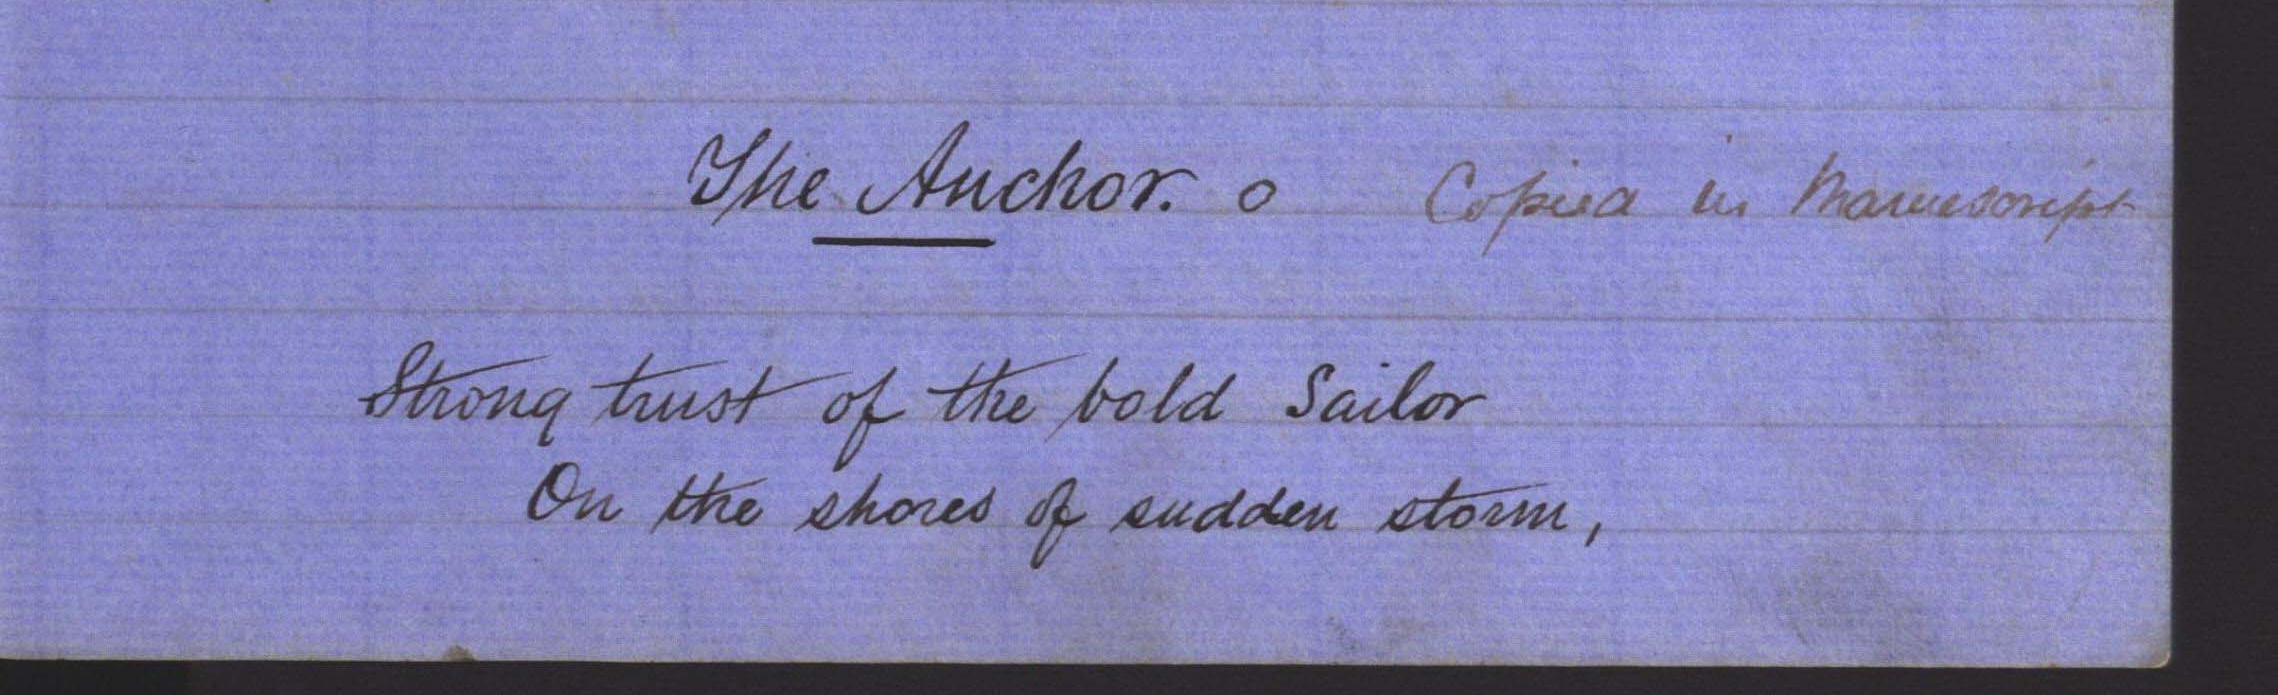 The Anchor. o Copied in Manuscript
Strong trust of the bold Sailor
On the shores of sudden storm,